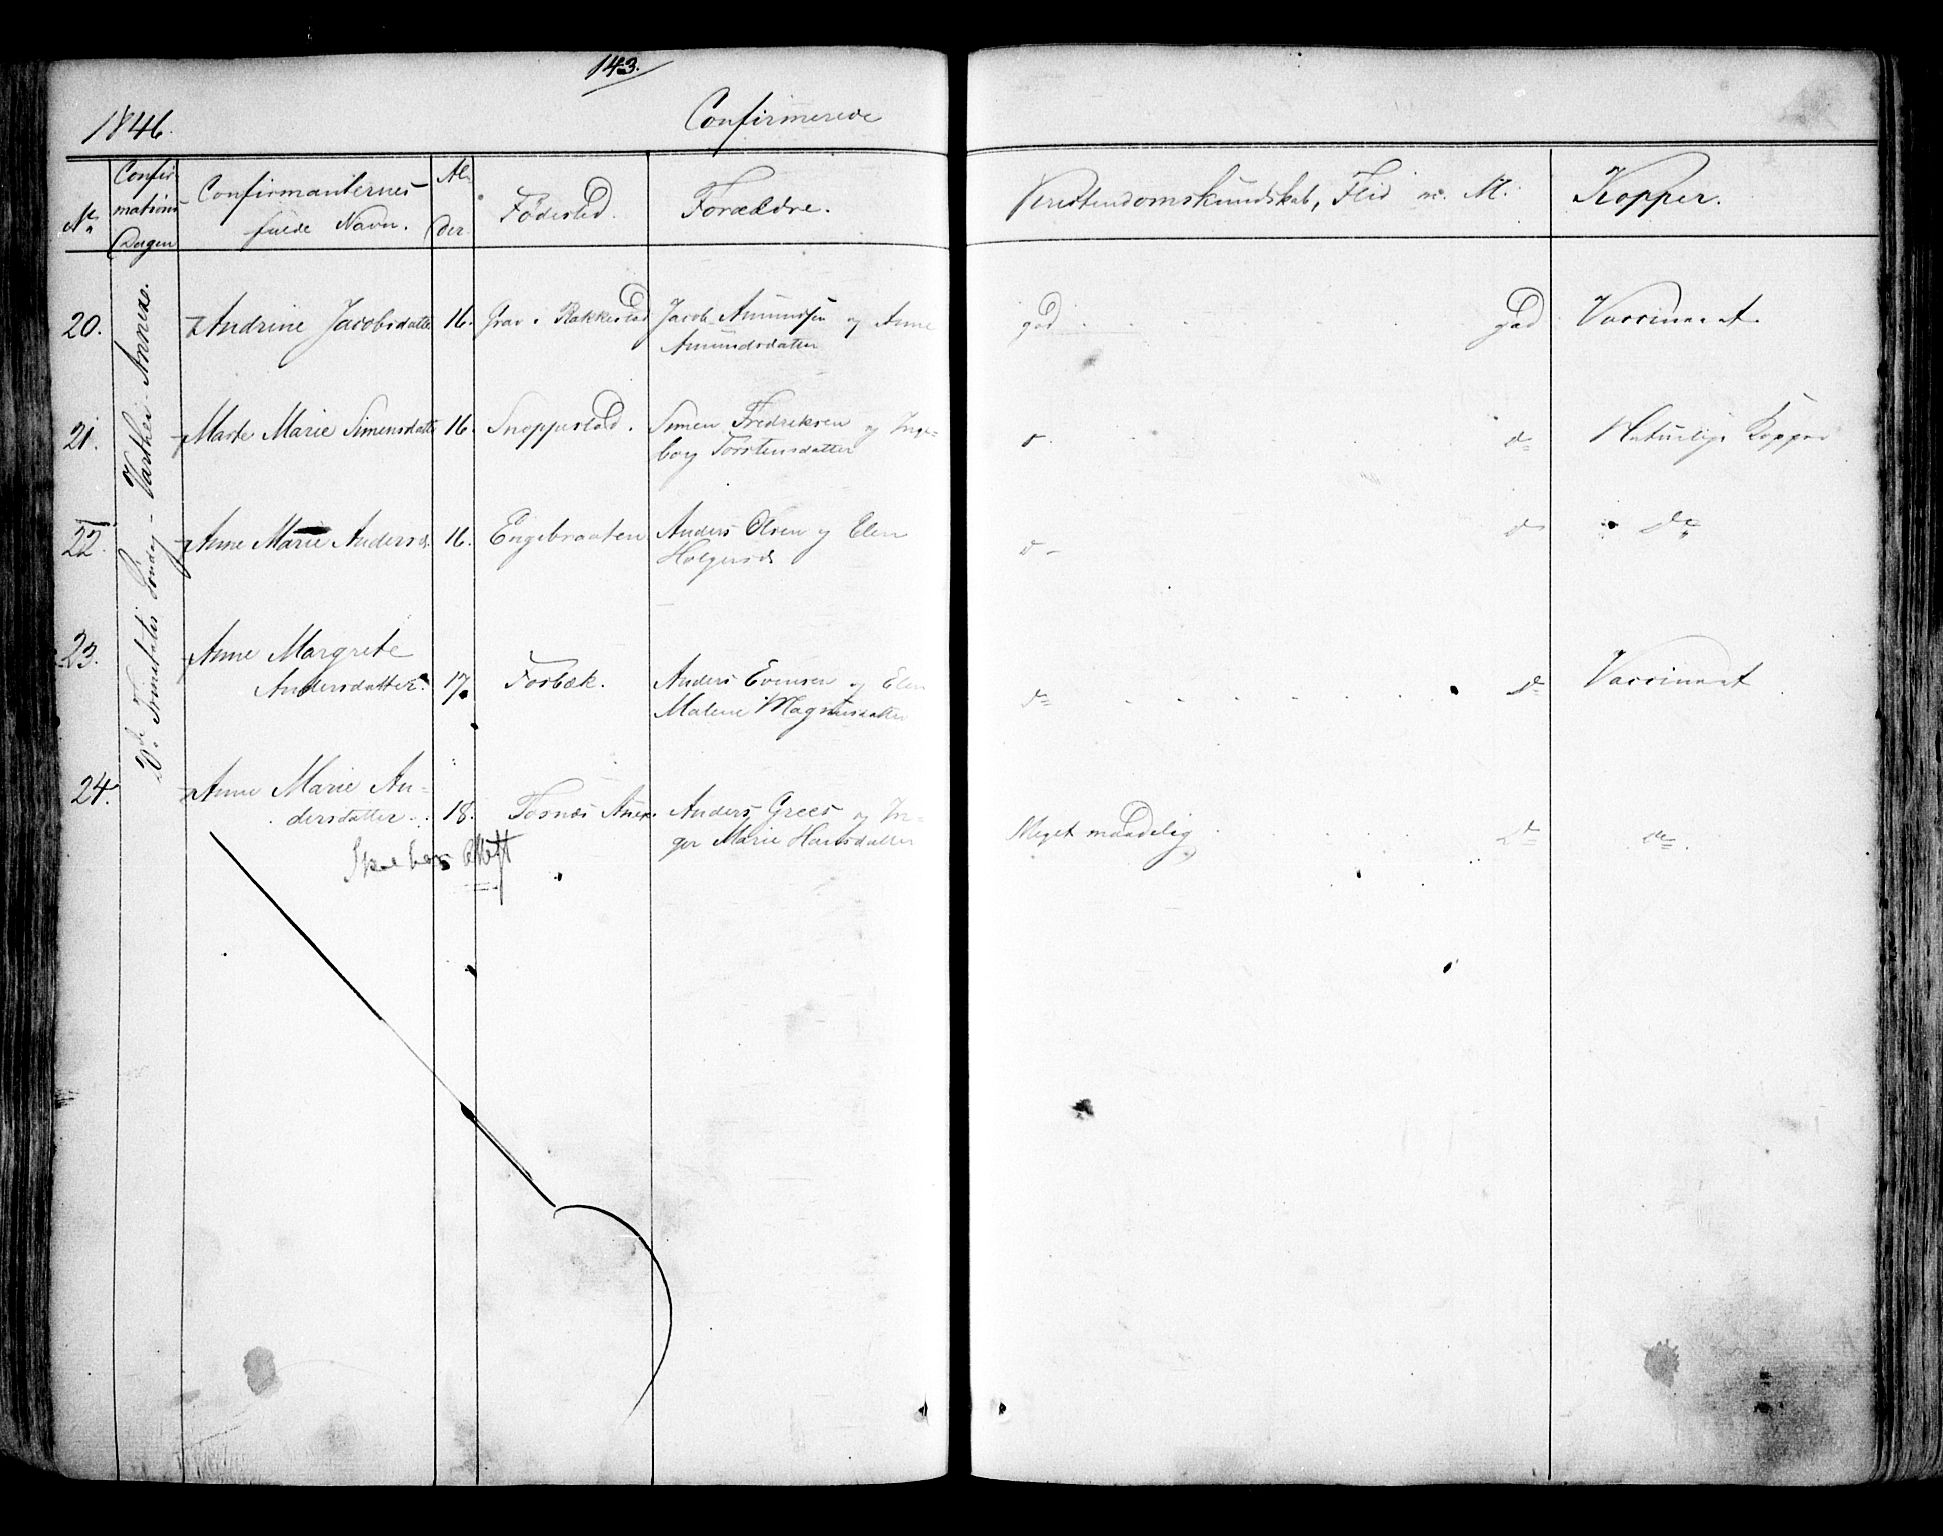 143.
1846.
Confirmerede
No
Confir-
mations
Dagen
Confirmanternes
fulde Navn.
Al-
der
Fødested.
Forældre.
Christendomskundskab, Flid m. M.
Kopper.
Trinitatis Søndag - Varthei Annexe.
20. Andrine Jacobsdatter 16. Grav i Rakkestad Jacob Amundsen og Anne
Amundsdatter
god god Vaccineret.
21. Marte Marie Simensdatter 16. Snoppestad. Simen Fredriksen og Inge-
borg Torstensdatter
do do Naturlige Kopper
22. Anne Marie Andersd. 16. Engebraaten Anders Olsen og Elen
Holgersd
do do do
23. Anne Margrete
Andersdatter. 17. Fosbæk. Anders Evensen og Elen
Malene Magnusdatter
do do Vaccineret
24. Anne Marie An-
dersdatter 18. Tosnæs Anex. Anders Grees og In-
ger Marie Hansdatter
Meget maadelig do do